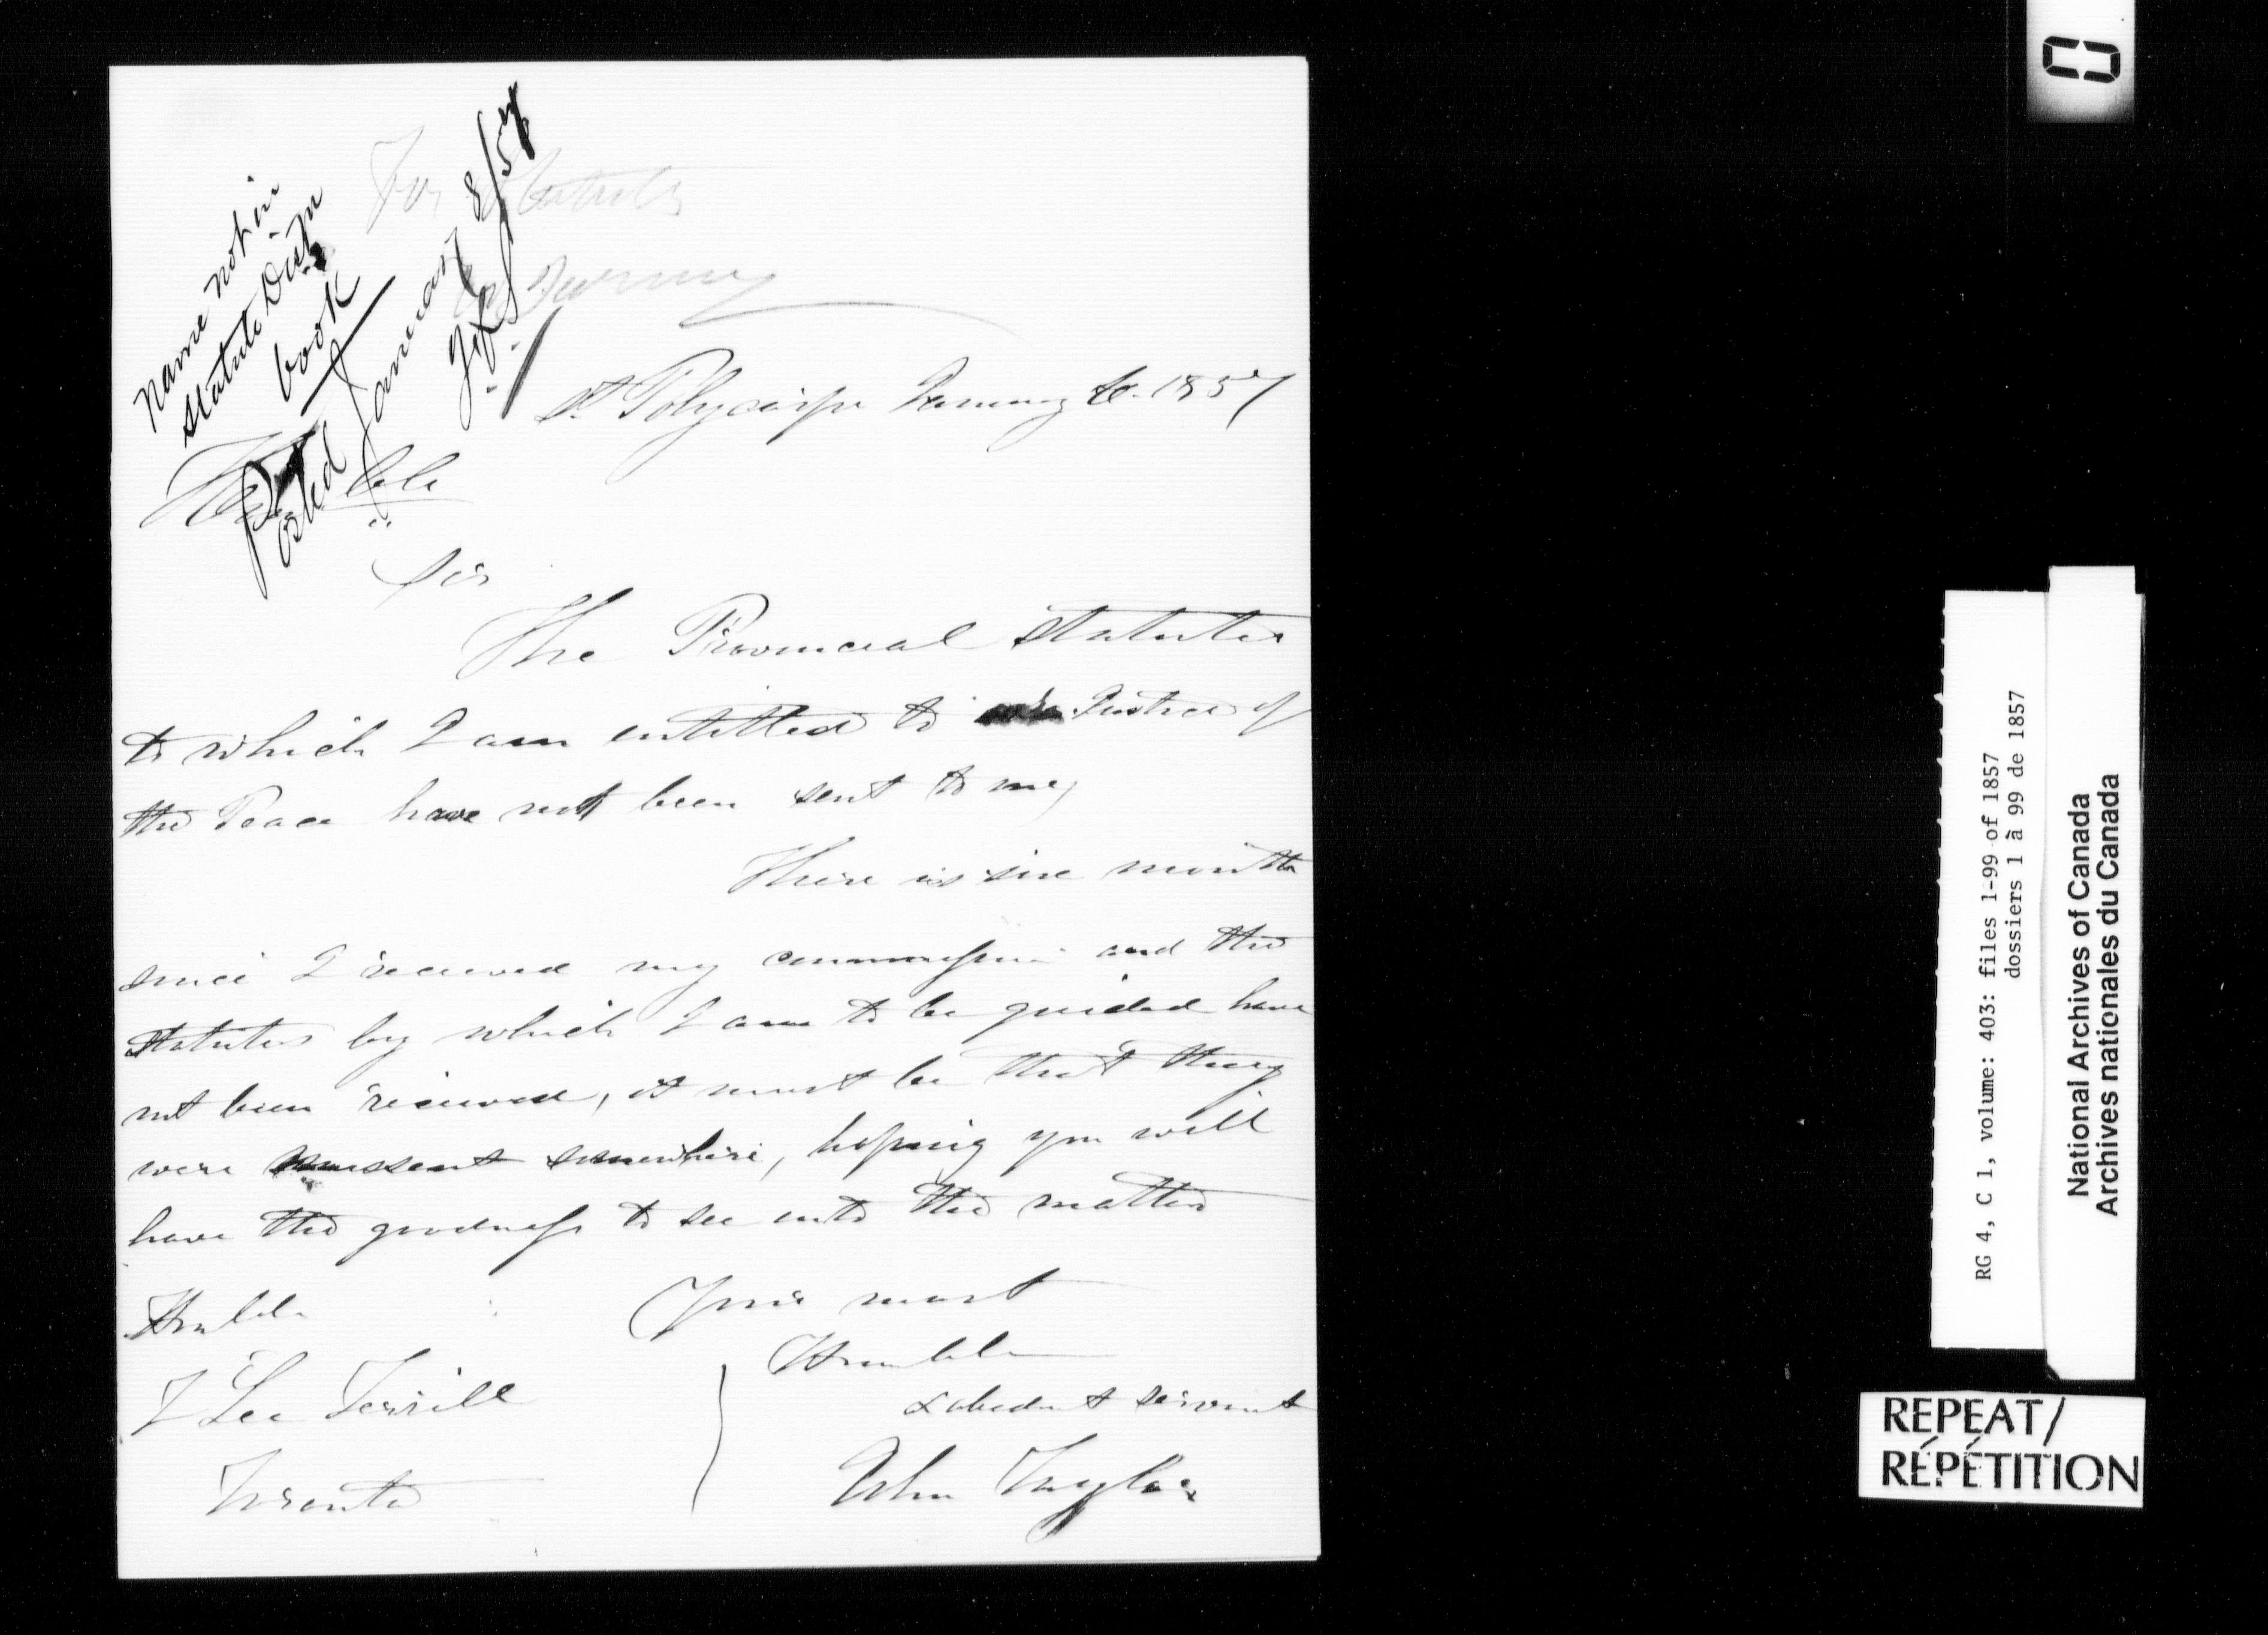 For Statutes
Name not in
Statute Distn
book
Posted January 8/57
St Polycarpe January 6. 1857
Honble
Sir
The Provincial Statutes
to which I am entitled to as a Justice of
the Peace have not been sent to me,
There is six months
since I received my commission and the
Statutes by which I am to be guided have
not been received, it must be that they
were missent somewhere, hoping you will
have the goodness to see into the matter
Your most
Humble
& obedient servant
John Taylor
Honble
T Lee Terrill
Toronto
RG 4, C 1, volume: 403: files 1-99 of 1857
dossiers 1 à 99 de 1857
National Archives of Canada
Archives nationales du Canada
REPEAT/
RÉPÉTITION